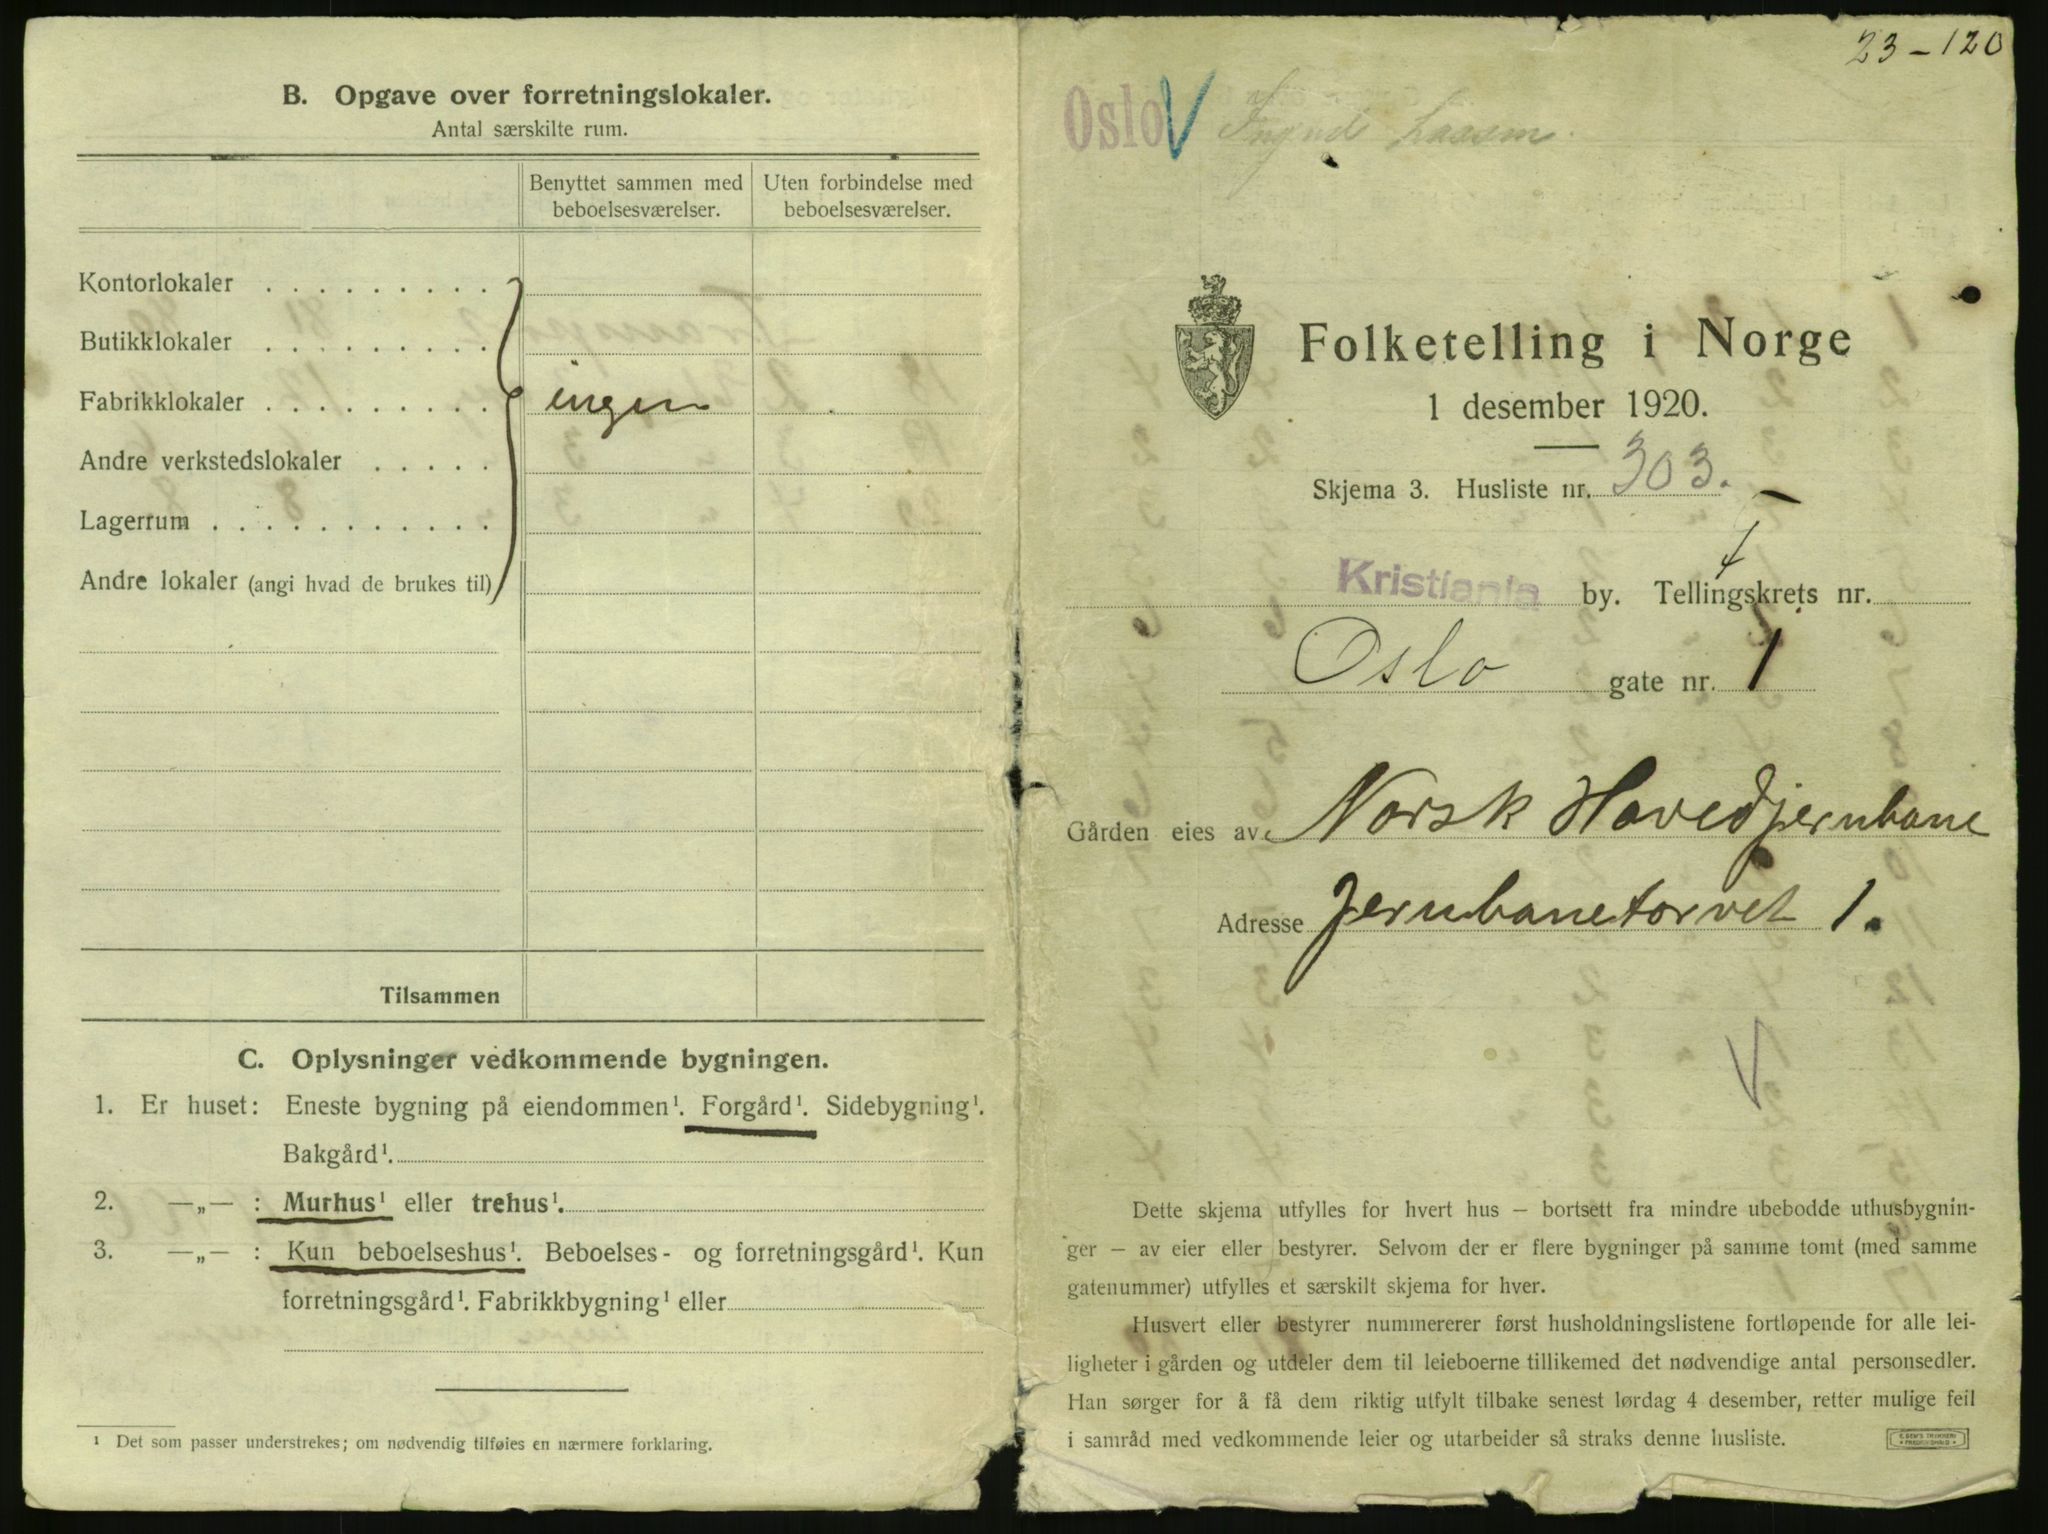 B. Opgave over forretningslokaler.
Antal særskilte rum.
Benyttet sammen med beboelsesværelser.
Uten forbindelse med beboelsesværelser.
Kontorlokaler . . . . . . . . .
Butikklokaler . . . . . . . . .
Fabrikklokaler . . . . . . . . . ingen
Andre verkstedslokaler . . . . .
Lagerrum . . . . . . . . . . . .
Andre lokaler (angi hvad de brukes til)
Tilsammen
C. Oplysninger vedkommende bygningen.
1. Er huset: Eneste bygning på eiendommen¹. Forgård¹. Sidebygning¹.
Bakgård¹.
2. —„— : Murhus¹ eller trehus¹.
3. —„— : Kun beboelseshus¹. Beboelses- og forretningsgård¹. Kun
forretningsgård¹. Fabrikkbygning¹ eller
¹ Det som passer understrekes; om nødvendig tilføies en nærmere forklaring.
23-120
Oslo
Folketelling i Norge
1 desember 1920.
Skjema 3. Husliste nr. 303.
Kristiania by. Tellingskrets nr.
Oslo gate nr. 1
Gården eies av Norsk Hovedjernbane
Adresse Jernbanetorvet 1.
Dette skjema utfylles for hvert hus – bortsett fra mindre ubebodde uthusbygnin-
ger – av eier eller bestyrer. Selvom der er flere bygninger på samme tomt (med samme
gatenummer) utfylles et særskilt skjema for hver.
Husvert eller bestyrer nummererer først husholdningslistene fortløpende for alle lei-
ligheter i gården og utdeler dem til leieboerne tillikemed det nødvendige antal personsedler.
Han sørger for å få dem riktig utfylt tilbake senest lørdag 4 desember, retter mulige feil
i samråd med vedkommende leier og utarbeider så straks denne husliste.